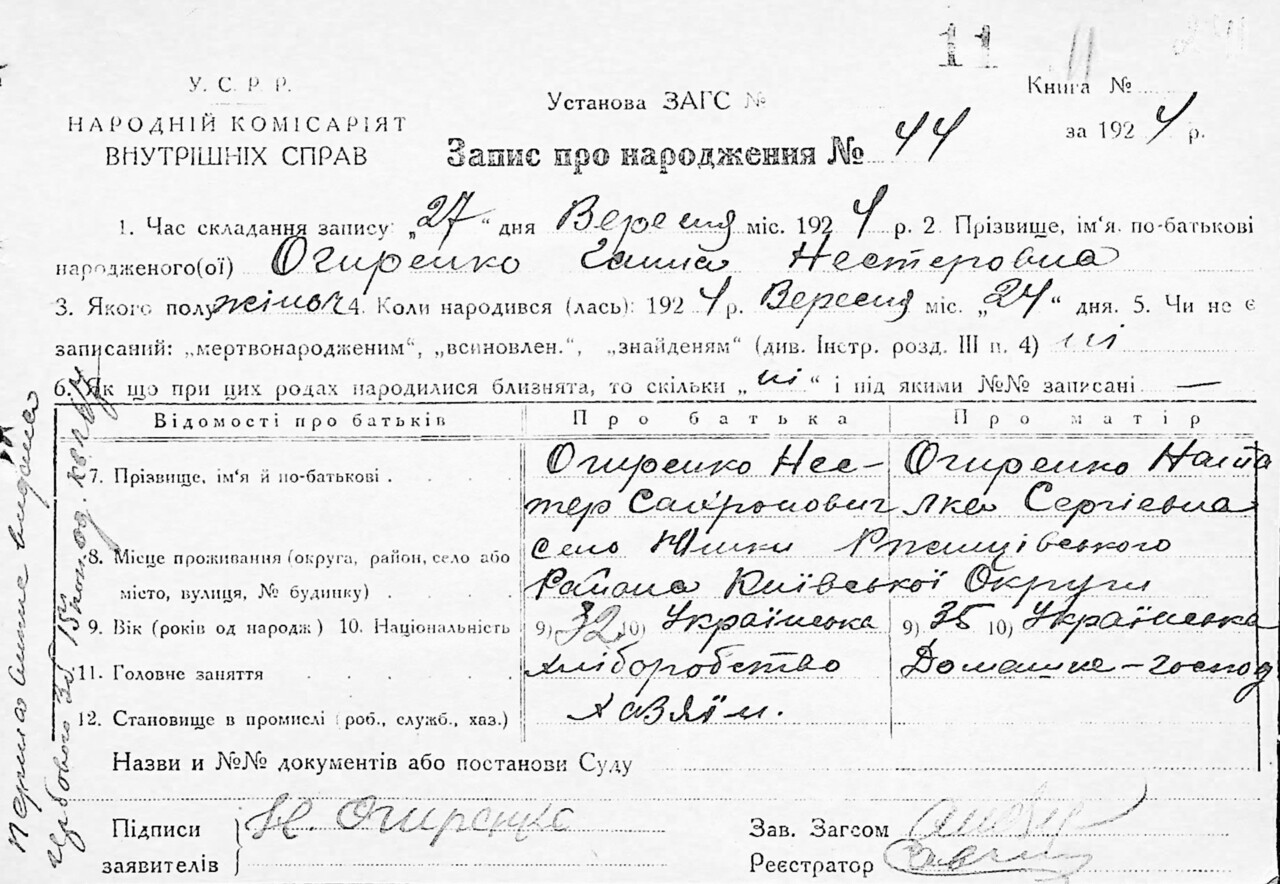 11 11
У. С. Р. Р.
НАРОДНІЙ КОМІСАРІЯТ
ВНУТРІШНІХ СПРАВ
Установа ЗАГС №
Книга №
за 1924 р.
Запис про народження № 44
1. Час складання запису: „27“ дня Вересня міс. 1924 р. 2. Прізвище, ім‘я, по-батькові
народженого(ої) Огиренко Ганна Нестеровна
3. Якого полу жіноч 4. Коли народився (лась): 1924 р. Вересня міс. „24“ дня. 5. Чи не є
записаний: „мертвонародженим“, „всиновлен.“, „знайденям“ (див. Інстр. розд. III п. 4) ні
6. Як що при цих родах народилися близнята, то скільки „ні“ і під якими №№ записані —
Відомості про батьків Про батька Про матір
7. Прізвище, ім‘я й по-батькові Огиренко Нес- Огиренко Ната
тер Сафронович лка Сергієвна
8. Місце проживання (округа, район, село або село Юшки Ржищівського
місто, вулиця, № будинку) Района Київської Округи
9. Вік (років од народж) 10. Національність 9) 32 10) Українська 9) 35 10) Українська
11. Головне заняття хліборобство Домашнє-господ
12. Становище в промислі (роб., служб., хаз.) хазяїн.
Назви и №№ документів або постанови Суду
Підписи
заявителів
Н. Огиренко
Зав. Загсом
Реєстратор